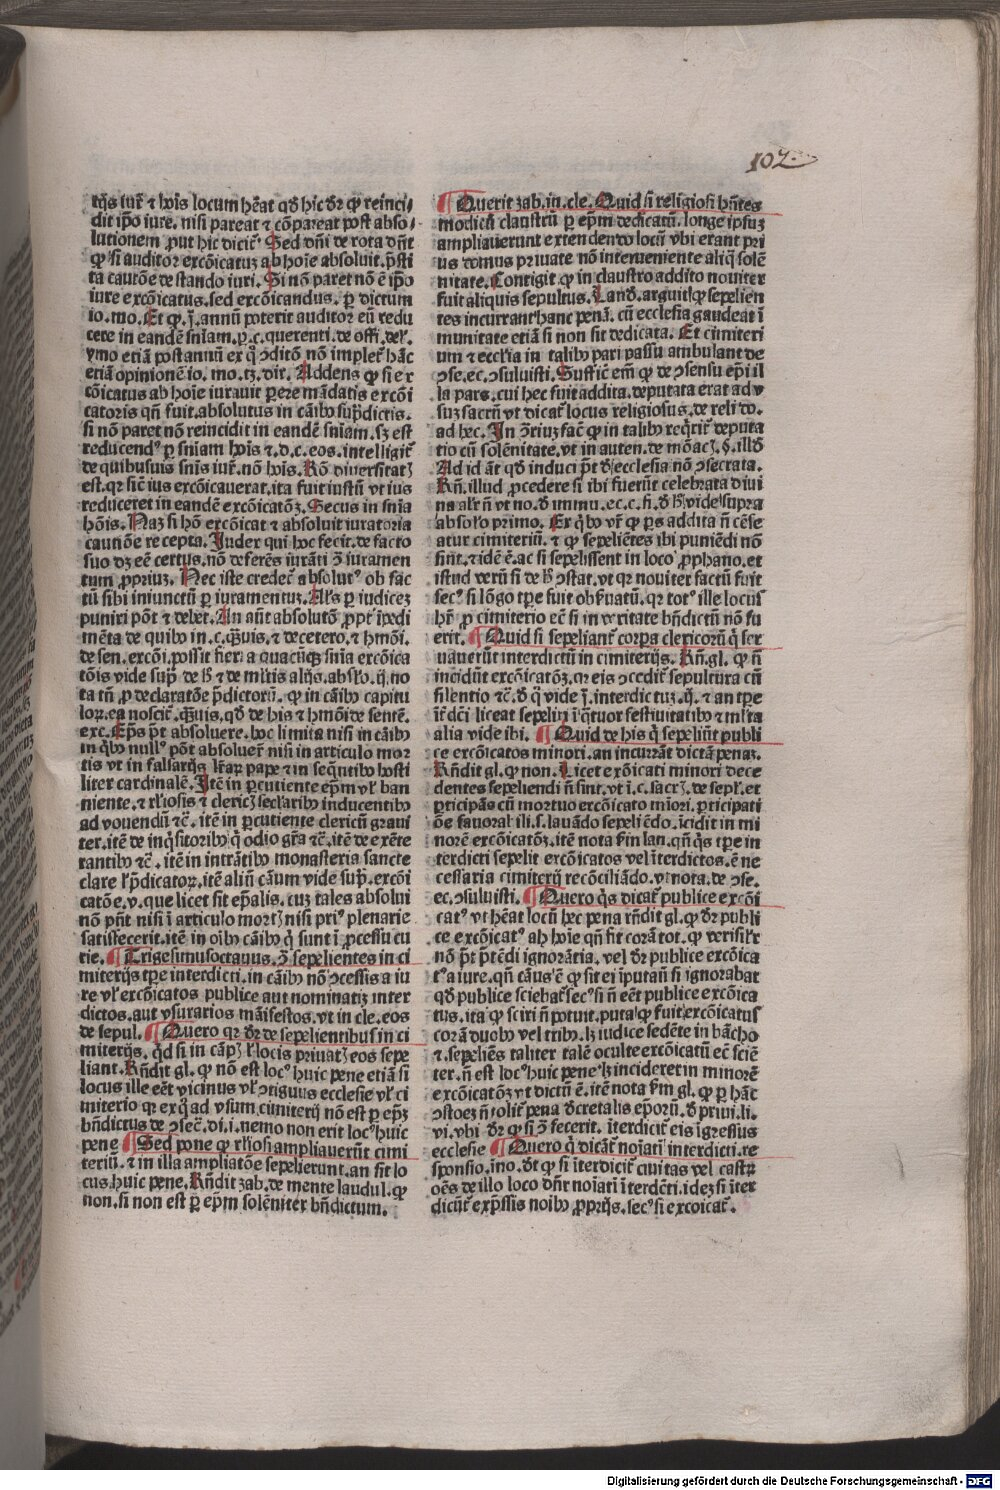 102.
rijs iur̃ ⁊ hoīs locum hēat qđ hic dr̄ ꝙ reinci/
dit ip̄o iure. nisi pareat ⁊ cōpareat post abso/
lutionem ꝓut hic dicit᷑ Sed dn̄i de rota dn̄t
ꝙ si auditor excōicatuȝ ab hoīe absoluit. p̄sti
ta cautōe de stando iuri. Si nō paret nō ē ip̄o
iure excōicatus. sed excōicandus. ꝑ dictum
io. mo. Et ꝙ. j. annū poterit auditor eū redu
cere in eandē sn̄iam. ꝑ. c. querenti. de offi. del᷑.
ymo etiā post annū ex q̊ ꝯditō nō implet᷑ hāc
etiā opinionē io. mo. tȝ. dit. Addens ꝙ si ex
cōicatus ab hoīe iurauit ꝑere mādatis excōi
catoris qn̄ fuit. absolutus in cāibꝰ sup̄dictis.
si nō paret nō reincidit in eandē sn̄iam. sȝ est
reducendꝰ ꝑ sn̄iam hoīs ⁊. d. c. eos. intelligit᷑
de quibusuis sn̄is iur̃. nō hoīs. Rō diuersitatꝭ
est. qr sic̄ ius excōicauerat. ita fuit iustū vt ius
reduceret in eandē excōicatōȝ. Secus in sn̄ia
hōis. Naȝ si hō excōicat ⁊ absoluit iuratoria
cautiōe recepta. Iudex qui hoc fecit. de facto
suo dȝ eē certus. nō deferēs iurāti ꝯ̄ iuramen
tum ꝓpriuȝ. Nec iste credet᷑ absolutꝰ ob fac
tū sibi iniunctū ꝑ iuramentuȝ. Al᷑s ꝑ iudiceȝ
puniri pōt ⁊ debet. An aūt absolutō ꝓpt᷑ īpedi
mēta de quibꝰ in. c. q̄uis. ⁊ de cetero. ⁊ hmōi.
de sen. excōi. possit fieri a quacūqȝ sn̄ia excōica
tōis vide sup̄. de h̄ ⁊ de ml̄tis alijs. abso᷑lo. ij. no
ta tn̄ ꝓ declaratōe p̄dictorū. ꝙ in cāibꝰ capitu
loꝝ. ea noscit᷑. q̄uis. qđ de his ⁊ hmōi de sentē.
exc. Ep̄s p̄t absoluere. hoc limita nisi in cāibꝰ
in q̊bꝰ nullꝰ pōt absoluer̃ nisi in articulo mor
tis vt in falsarijs lr̄aꝝ pape ⁊ in seq̄ntibꝰ hosti
liter cardinalē. Itē in ꝑcutiente ep̄m vl᷑ ban
niente. ⁊ rl᷑iosis ⁊ clericꝭ sec᷑laribꝰ inducentibꝰ
ad vouendū ⁊c̄. itē in ꝑcutiente clericū graui
ter. itē de inq̊sitoribꝰ q̊ odio gr̄a ⁊c̄. itē de exēte
rantibꝰ ⁊c̄. itē in intrātibꝰ monasteria sancte
clare l᷑ p̄dicatoꝝ. itē aliū cāum vide sup̄. excōi
catōe. v. que licet sit ep̄alis. tuȝ tales absolui
nō pn̄t nisi ī articulo mortꝭ nisi priꝰ plenarie
satisfecerit. itē in oībꝰ cāibꝰ q̊ sunt ī ꝓcessu cu
rie. ¶ Trigesimusoctauus. ꝯ̄ sepelientes in ci
miterijs tꝑe interdicti. in cāibꝰ nō ꝯcessis a iu
re vl᷑ excōicatos publice aut nominatiȝ inter
dictos. aut vsurarios māifestos. vt in cle. eos
de sepul. ¶ Quero qr dr̄ de sepelientibus in ci
miterijs. qđ si in cāpꝭ l᷑ locis priuatꝭ eos sepe
liant. Rn̄dit gl. ꝙ nō est locꝰ huic pene etiā si
locus ille eēt vicinus vl᷑ ꝯtiguus ecclesie vl᷑ ci
miterio qr ex q̊ ad vsum cimiterij nō est ꝑ ep̄ȝ
bn̄dictus de ꝯsec̄. di. i. nemo non erit locꝰ huic
pene ¶ Sed pone ꝙ rl᷑iosi ampliauerūt cimi
teriū. ⁊ in illa ampliatōe sepelierunt. an sit lo
cus huic pene. Rn̄dit zab. de mente laudul. ꝙ
non. si non est ꝑ ep̄m solēniter bn̄dictum.
¶ Querit zab. in. cle. Quid si religiosi hn̄tes
modicū claustrū ꝑ ep̄m dedicatū. longe ipsuȝ
ampliauerunt extendendo locū vbi erant pri
us domus priuate nō interueniente aliq̄ solē
nitate. Contigit ꝙ in claustro addito nouiter
fuit aliquis sepultus. Landꝰ. arguit ꝙ sepelien
tes incurrant hanc penā. cū ecclesia gaudeat ī
munitate etiā si non sit dedicata. Et cimiteri
um ⁊ eccl᷑ia in talibꝰ pari passu ambulant de
ꝯse. ec. ꝯsuluisti. Suffic̄ em̄ ꝙ de ꝯsensu ep̄i il
la pars. cui hec fuit addita. deputata erat ad v
suȝ sacrū vt dicat᷑ locus religiosus. de reli do.
ad hec. In ꝯ̄riuȝ fac̄ ꝙ in talibꝰ req̊rit᷑ deputa
tio cū solēnitate. vt in auten. de mōacꝭ. §. illđ
Ad id āt qđ induci p̄t de ecclesia nō ꝯsecrata.
Rn̄. illud ꝓcedere si ibi fuerūt celebrata diui
na al᷑r n̄ vt no. đ immu. ec. c. fi. đ h̄ vide supra
abso᷑lo primo. Ex q̊bꝰ vr̄ ꝙ ps addita n̄ cēse
atur cimiteriū. ⁊ ꝙ sepeliētes ibi puniēdi nō
sint. ⁊ idē ē. ac si sepelissent in loco ꝓphano. et
istud verū si de h̄ ꝯstat. vt qr nouiter factū fuit
secꝰ si lōgo tꝑe fuit obseruatū. qr totꝰ ille locus
hr̄ ꝓ cimiterio et᷑ si in veritate bn̄dictū nō fu
erit. ¶ Quid si sepeliant᷑ corpa clericorū q̊ ser
uauerūt interdictū in cimiterijs. Rn̄. gl. ꝙ n̄
incidūt excōicatōȝ. qr eis ꝯcedit᷑ sepultura cū
silentio ⁊c̄. đ q̊ vide j. interdictuȝ. ij. ⁊ an tꝑe
īt᷑dc̄i liceat sepeliri ī q̊tuor festiuitatibꝰ ⁊ ml̄ta
alia vide ibi. ¶ Quid de his q̊ sepeliūt publi
ce excōicatos minori. an incurrāt dictā penaȝ.
Rn̄dit gl. ꝙ non. Licet exōicati minori dece
dentes sepeliendi n̄ sint. vt ī. c. sacrꝭ. de sepl᷑. et
ꝑticipās cū mortuo excōicato mīori. ꝑticipati
ōe fauorabili. s. lauādo sepeliēdo. īcidit in mi
norē excōicatōȝ. itē nota s̄m lan. qn̄ q̊s tꝑe in
terdicti sepelit excōicatos vel īterdictos. ē ne
cessaria cimiterij recōciliādo. vt nota. de ꝯse.
ec. ꝯsuluisti. ¶ Quero q̊s dicat᷑ publice excōi
catꝰ vt hēat locū hec pena rn̄dit gl. ꝙ dr̄ publi
ce excōicatꝰ ab hoīe qn̄ fit corā tot. ꝙ verisil᷑r
nō p̄t p̄tēdi ignorātia. vel dr̄ publice excōica
tꝰ a iure. qn̄ cāus ē ꝙ sit ei īputan̄ si ignorabat
qđ publice sciebat᷑ secꝰ si n̄ eēt publice excōica
tus. ita ꝙ sciri n̄ potuit. puta ꝙ fuit excōicatus
corā duobꝰ vel tribꝰ. lȝ iudice sedēte in bācho
⁊. sepeliēs taliter talē oculte excōicatū et᷑ sciē
ter. n̄ est locꝰ huic pene lȝ incideret in minorē
excōicatōȝ vt dictū ē. itē nota s̄m gl. ꝙ ꝑ hāc
ꝯstōeȝ n̄ tolit᷑ pena đcretalis ep̄orū. đ priui. li.
vi. vbi dr̄ ꝙ si ꝯ̄ fecerit. īterdicit᷑ eis īgressus
ecclesie ¶ Quero q̊ dicāt᷑ noīati interdicti. re
sponsio. īno. dt ꝙ si īterdicit᷑ ciuitas vel castꝝ
oēs de illo loco dn̄r noīati īterdc̄ti. ideȝ si īter
dicūt᷑ exp̄ssis noībꝰ ꝓprijs. secꝰ si excoicat᷑.
Digitalisierung gefördert durch die Deutsche Forschungsgemeinschaft - DFG